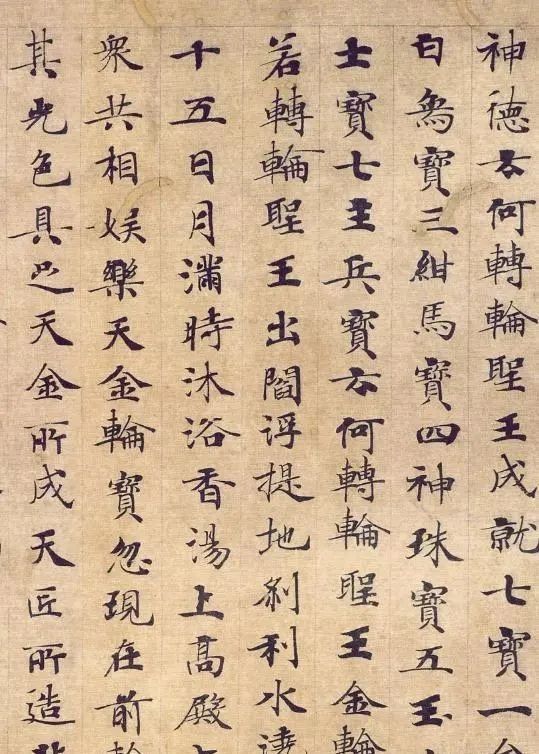 神德云何轉輪聖王成就七寶一金
白象寶三紺馬寶四神珠寶五玉
士寶七主兵寶云何轉輪聖王金輪
若轉輪聖王出閻浮提地剎利水澆
十五日月滿時沐浴香湯上高殿上
眾共相娛樂天金輪寶忽現在前輪
其光色具足天金所成天匠所造